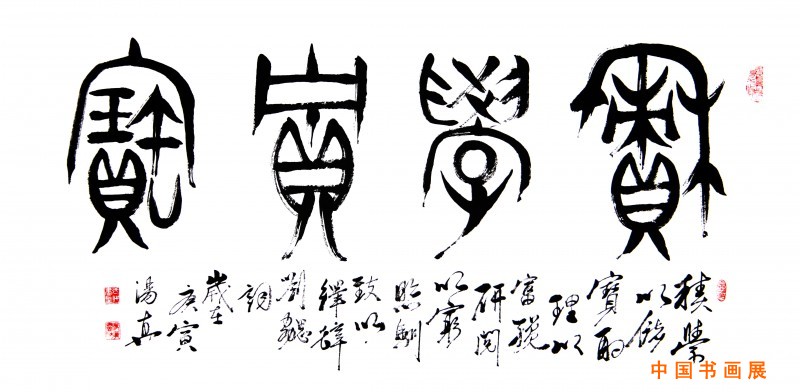 積學貯寶
積學
以儲
寶酌
理以
富
研閱
以窮
照馴
致以
繹辭
劉勰
詞
歲在
庚寅
湯真
中国书画展